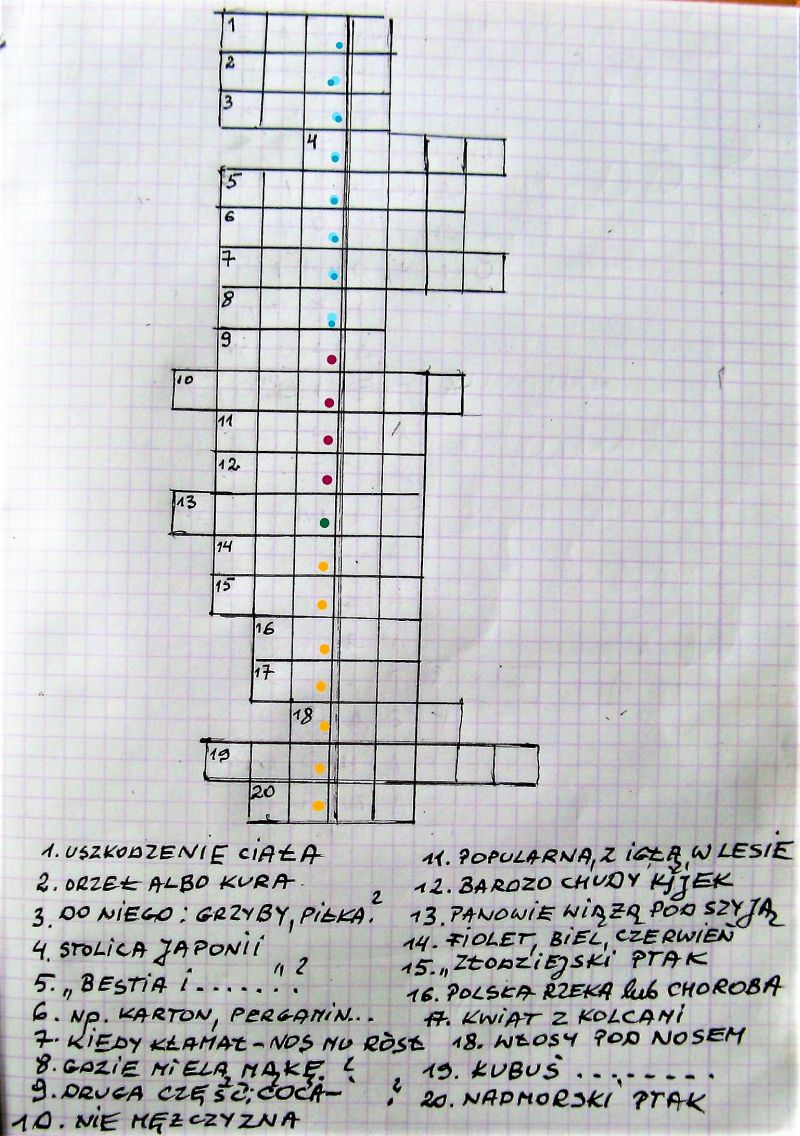 1
2
3
4
5
6
7
8
9
10
11
12
13
14
15
16
17
18
19
20
1. USZKODZENIE CIAŁA
2. ORZEŁ ALBO KURA
3. DO NIEGO: GRZYBY, PIŁKA.?
4. STOLICA JAPONII
5. „BESTIA I ......." ?
6. NP. KARTON, PERGAMIN...
7. KIEDY KŁAMAŁ - NOS MU RÓSŁ
8. GDZIE MIELĄ MĄKĘ. ?
9. DRUGA CZĘŚĆ; COCA- ?
10. NIE MĘŻCZYZNA
11. POPULARNA, Z IGŁĄ, W LESIE
12. BARDZO CHUDY KIJEK
13. PANOWIE WIĄŻĄ POD SZYJĄ
14. FIOLET, BIEL, CZERWIEŃ
15. „ZŁODZIEJSKI PTAK
16. POLSKA RZEKA lub CHOROBA
17. KWIAT Z KOLCAMI
18. WŁOSY POD NOSEM
19. KUBUŚ ........
20. NADMORSKI PTAK